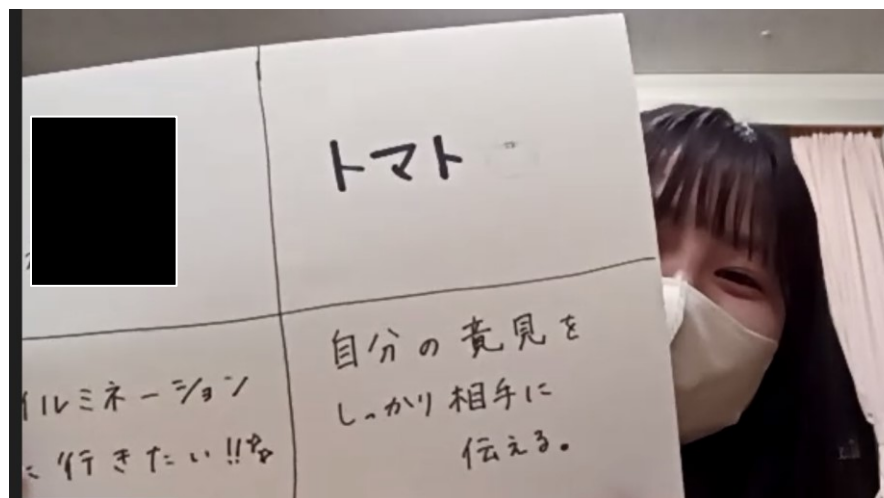 トマト
イルミネーション
に行きたい!!
自分の意見を
しっかり相手に
伝える。